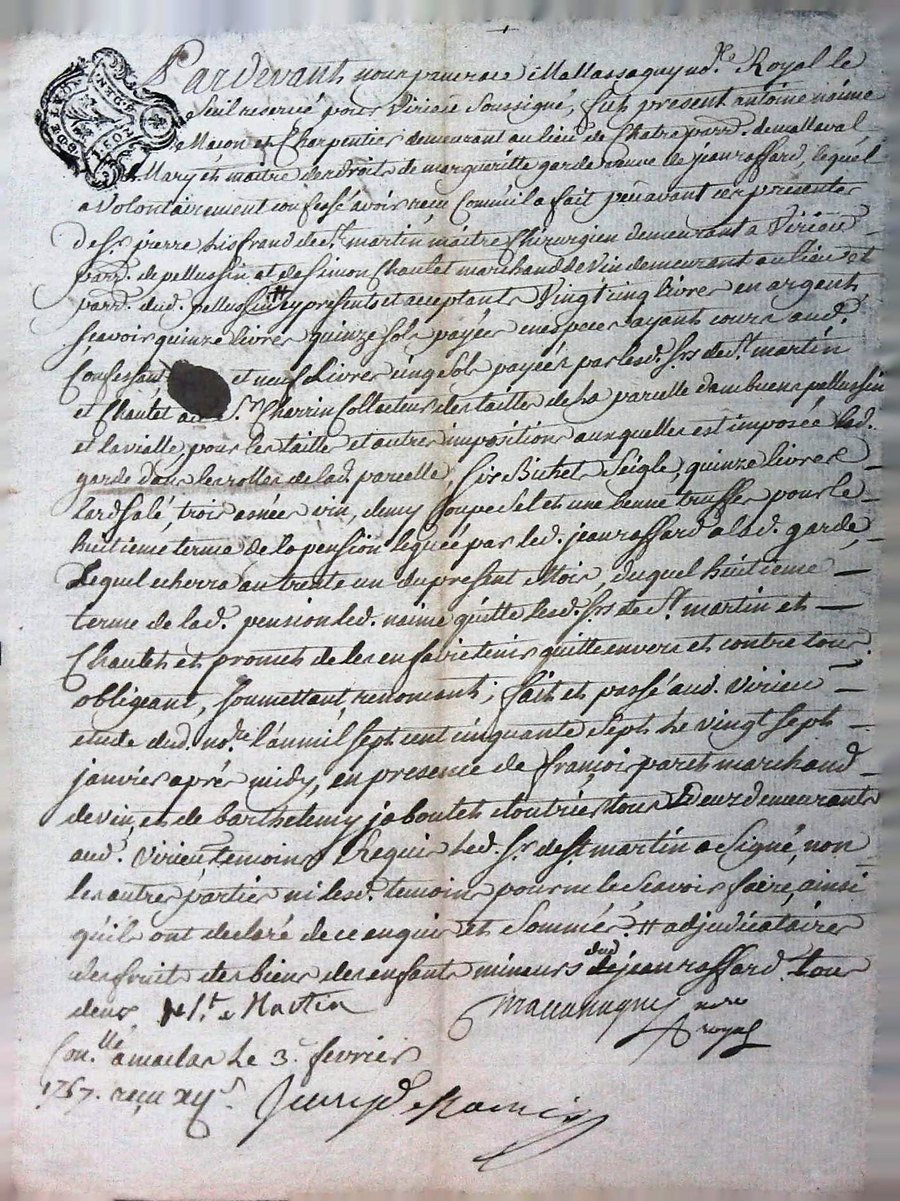 Pardevant nous Mallassagny no.re Royal le
Seul reservé pour Virieu Soussigné, fut present antoine néime
Macon et Charpentier demeurant au lieu de Chatre parr. de mallaval
Mary et maitre des droits de margueritte garde veuve de jean raffard, lequel
a Volontairement confessé avoir reçu Comme il a fait peu avant ces presentes
de Sr. pierre de St. martin maitre Chirurgien demeurant a Virieu
parr. de pellussin et de Simon Chaulet marchand de Vin demeurant au lieu et
parr. dud. pellussin # cy presents et acceptants Vingt cinq livres en argent
scavoir quinze livres quinze sols payés en especes ayant cours aud.
Confessant et neuf Livres cinq sols payées par lesd. Srs de St. martin
et Chaulet Sr. Cherrin Collecteur des tailles de la parcelle pellussin
et la vialle pour les taille et autres impositions auxquelles est imposée lad.
garde dans les rolles de lad. parcelle, Six Bichet Seigle, quinze livres
Lard Salé, trois anées vin, demy Coupe Sel et une benne truffes pour le
huitieme terme de la pension leguée par led. jean raffard a lad. garde,
Lequel echerra au trente un du present Mois, duquel huitieme
terme de lad. pension led. néime quitte lesd. Srs de St. martin et
Chaulet et promet de les en faire tenir quitte envers et contre tous
obligeant, soumettant, renonçant; fait et passé aud. Virieu
etude dud. no.re l'an mil sept cent cinquante Sept Le vingt sept
janvier apres midy, en presence de françois paret marchand
de vin, et de barthelemy jaboulet cloutrier tous Deux demeurants
aud. Virieu temoins Requis Led. Sr. de St martin a Signé, non
les autres parties ni lesd. temoins pour ne le Scavoir faire, ainsi
qu'ils ont declaré de ce enquis et Sommés # adjudicataires
des fruit des biens des enfants mineurs dud. jean raffard tous
deux St. Martin
no.re royal
Con.llé a maclas Le 3e fevrier
1757. reçu